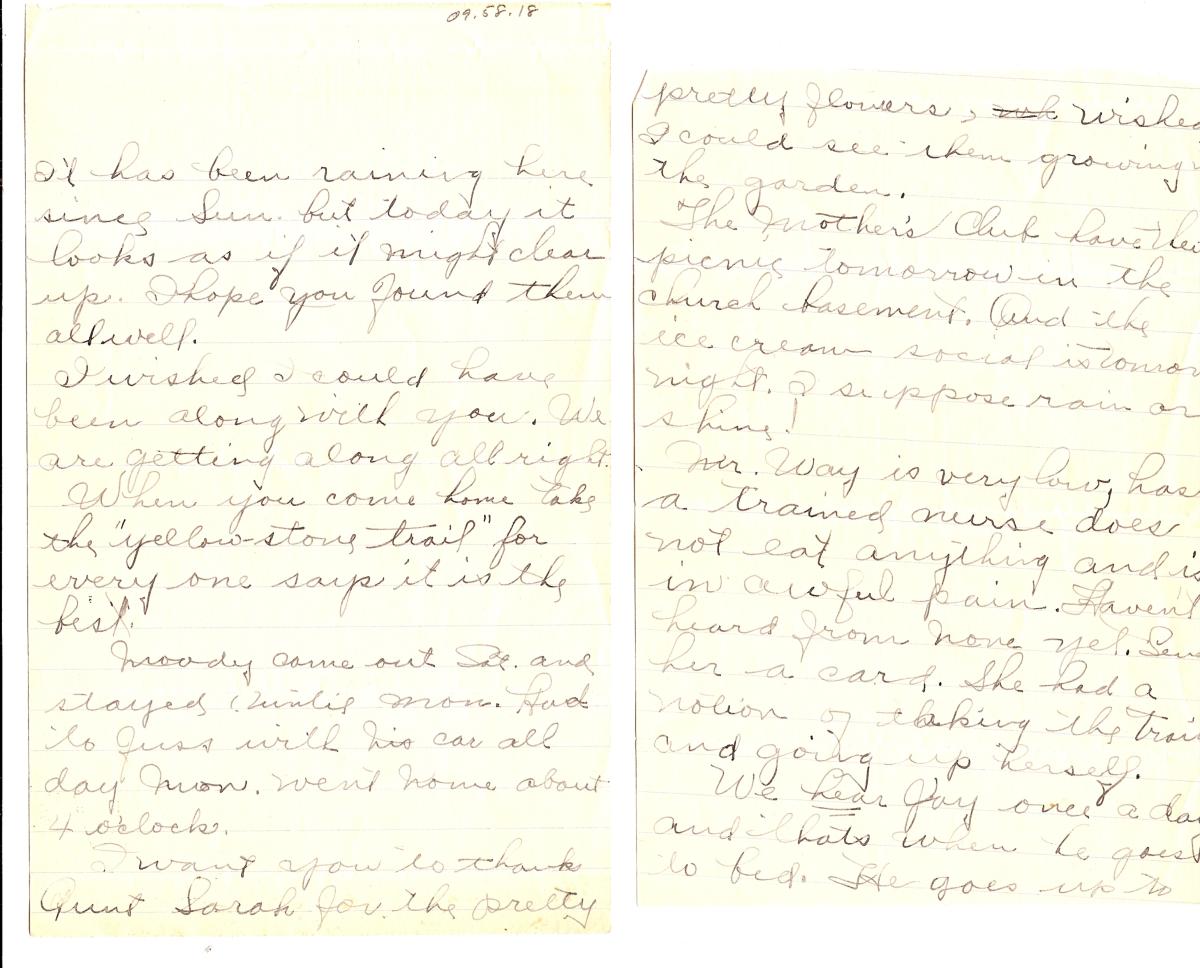 09.58.18
It has been raining here
since Sun. but today it
looks as if it might clear
up. I hope you found them
all well.
I wished I could have
been along with you. We
are getting along all right.
When you come home take
the "yellow-stone trail" for
every one says it is the
best.
Moody come out Sat. and
stayed until mon. Had
to fuss with his car all
day Mon. went home about
4 o'clock.
I want you to thank
Aunt Sarah for the pretty
pretty flowers, wished
I could see them growing
the garden.
The Mother's Club have their
picnic tomorrow in the
church basement. And the
ice cream social is tomor
night. I suppose rain or
shine!
Mr. Way is very low, has
a trained nurse does
not eat anything and is
in awful pain. Haven't
heard from none yet. Send
her a card. She had a
notion of taking the train
and going up herself.
We hear Jay once a day
and thats when he goes
to bed. He goes up to